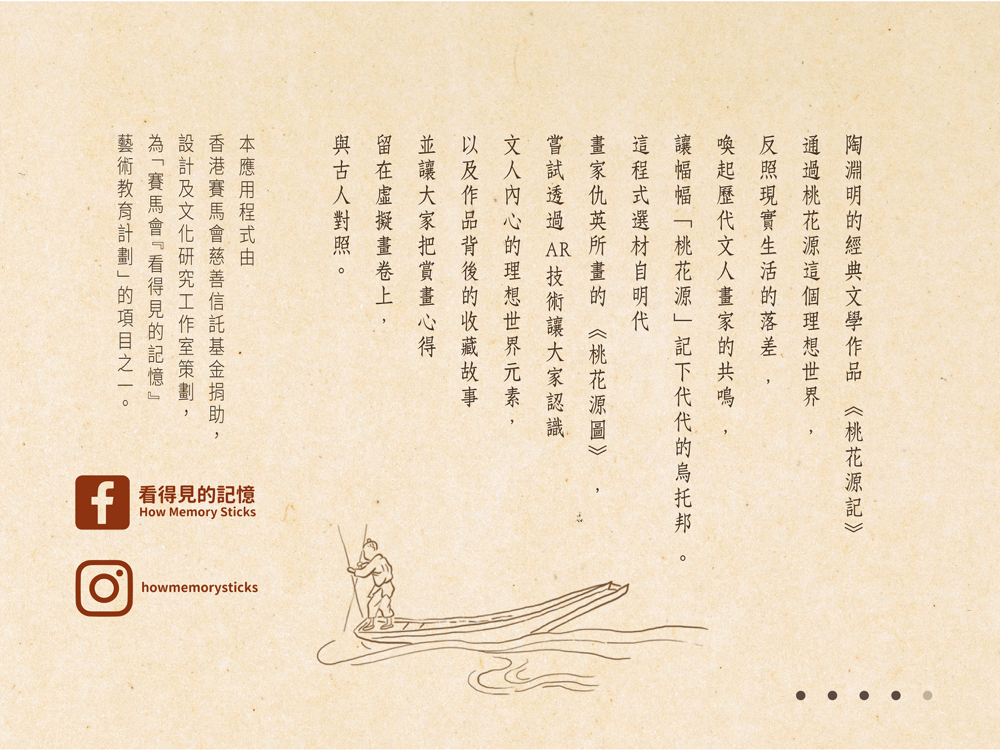 陶淵明的經典文學作品《桃花源記》
通過桃花源這個理想世界，
反照現實生活的落差，
喚起歷代文人畫家的共鳴，
讓幅幅「桃花源」記下代代的烏托邦。
這程式選材自明代
畫家仇英所畫的《桃花源圖》，
嘗試透過AR技術讓大家認識
文人內心的理想世界元素，
以及作品背後的收藏故事
並讓大家把賞畫心得
留在虛擬畫卷上，
與古人對照。
本應用程式由
香港賽馬會慈善信託基金捐助，
設計及文化研究工作室策劃，
為「賽馬會『看得見的記憶』
藝術教育計劃」的項目之一。
看得見的記憶
How Memory Sticks
howmemorysticks